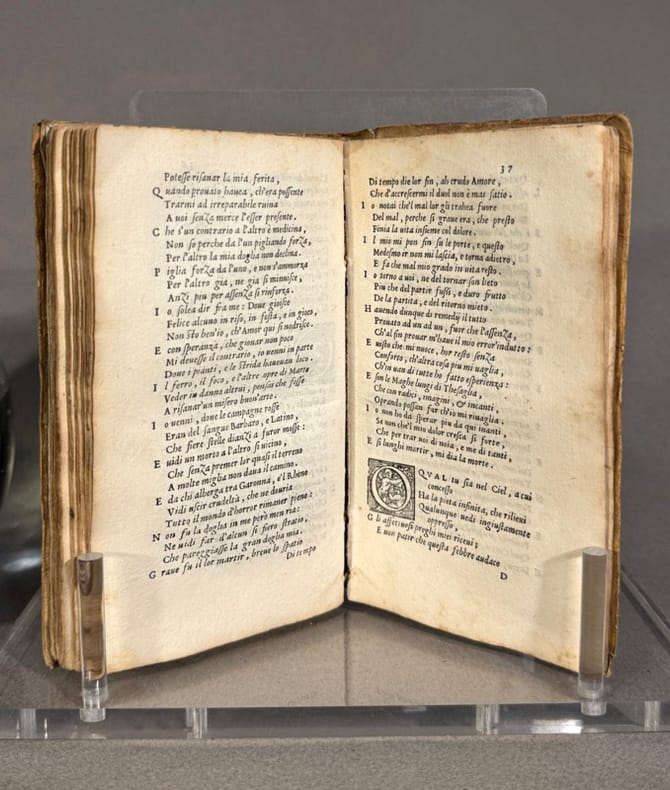 Potesse risanar la mia ferita,
Quando prouato hauea, ch'era possente
Trarmi ad irreparabile ruina
A uoi senza merce l'esser presente.
Che s'un contrario a l'altro è medicina,
Non so perche da l'un pigliando forza,
Per l'altro la mia doglia non declina.
Piglia forza da l'uno, e non s'ammorza
Per l'altro gia, ne gia si minuisce,
Anzi piu per assenza si rinforza.
Io solea dir fra me: Doue gioisce
Felice alcuno in riso, in festa, e in gioco,
Non stò ben'io, ch'Amor qui si nodrisce.
E con speranza, che giouar non poco
Mi deuesse il contrario, io uenni in parte
Doue i pianti, e le strida haueuan loco.
Il ferro, il foco, e l'altre opre di Marte
Veder in danno altrui, pensai che fosse
A risanar'un misero buon'arte.
Io uenni, doue le campagne rosse
Eran del sangue Barbaro, e Latino,
Che fiere stelle dianzi a furor mosse:
E uidi un morto a l'altro si uicino,
Che senza premer lor quasi il terreno
A molte miglia non daua il camino.
E da chi alberga tra Garonna, e'l Rheno
Vidi uscir crudeltà, che ne douria
Tutto il mondo d'horror rimaner pieno:
Non fu la doglia in me però men ria:
Ne uidi far d'alcun si fiero stratio,
Che pareggiasse la gran doglia mia.
Graue fu il lor martir, breue lo spatio
Di tempo
37
Di tempo die lor fin, ah crudo Amore,
Che d'accrescermi il duol non è mai satio.
Io notai che'l mal lor gli trahea fuore
Del mal, perche si graue era, che presto
Finia la uita insieme col dolore.
Il mio mi pon fin su le porte, e questo
Medesmo ir non mi lascia, e torna adietro,
E fa che mal mio grado in uita resto.
Io torno a uoi, ne del tornar son lieto
Piu che del partir fussi, e duro frutto
De la partita, e del ritorno mieto.
Hauendo dunque di remedij il tutto
Prouato ad un ad un, fuor che l'assenza,
Ch'al fin prouar m'haue il mio error'indutto:
E uisto che mi nuoce, hor resto senza
Conforto, ch'altra cosa piu mi uaglia,
Ch'in uan di tutte ho fatto esperienza:
E son le Maghe lungi di Thesaglia,
Che con radici, imagini, & incanti,
Oprando possan far ch'io mi riuaglia.
Io non ho da sperar piu da qui inanti,
Se non che'l mio dolor cresca si forte,
Che per trar uoi di noia, e me di tanti,
E si lunghi martir, mi dia la morte.
O QVAL tu sia nel Ciel, a cui
concesso
Ha la pieta infinita, che rilieui
Qualunque uedi ingiustamente
oppresso,
Gli affettuosi preghi miei riceui:
E non patir che questa febbre audace
D